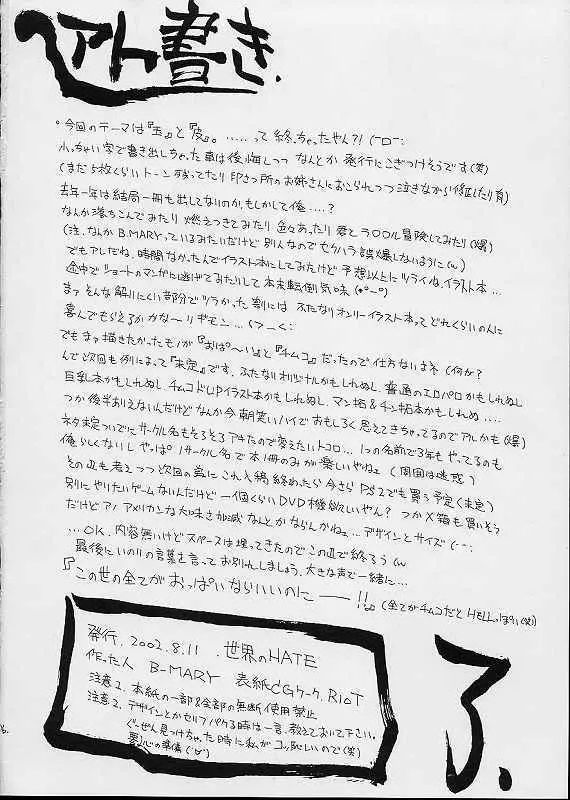 アト書き.
今回のテーマは『玉』と『皮』。......って終っちゃったやん?! (ーロー:
小っちゃい字で書き出しちゃった事は後悔しつつ なんとか 発行にこぎつけそうです(笑)
(まだ5枚くらいトーン残ってたり 印さつ所のお姉さんにおこられつつ泣きながら修正したり
去年一年は結局一冊も出してないのか、もしかして俺....?
なんか落ちこんでみたり 燃えつきてみたり 色々あったり 愛とラ○○ル冒険してみたり(爆)
(注、なんか B.MARYっているみたいだけど 別人なので セクハラ誤爆しないように(w)
でもアレだね、時間なかったんでイラスト本にしてみたけど 予想以上に ツライね、イラスト本...
途中でショートのマンガに逃げてみたりして本末転倒気味
まァ そんな解りにくい部分でツラかった割には ふたなりオンリーイラスト本って どれくらいの人に
喜んでもらえるかかな〜リギモン...
でもまァ描きたかったモノが『おぱ〜い』と『チムコ』だったので仕方ないよネ (何が?
んで次回も例によって『未定』です、ふたなりオリジナルかもしれぬし、普通のエロパロかもしれぬし
巨乳本かもしれぬし チムコドUPイラスト本かもしれぬし、マン拓&チン拓本かもしれぬ....
つか後半ありえないんだけど なんか今朝笑いハイでおもしろく思えてきちゃってるのでアルかも (爆)
ネタ未定ついでにサークル名もそろそろアキたので変えたいトコロ... 1つの名前で3年もやってるのも
俺らしくないし やっぱ1サークル名で本1冊のみが楽しいやねェ (周囲は迷惑)
その辺も考えつつ次回の為に これ入稿終わったら今さら PS2でも買う予定 (未定)
別にやりたいゲームないんだけど 一個くらいDVD機欲しいやん? つかX箱も買いそう
だけどアノ アメリカンな大味さ加減なんとかならんかねェ...デザインとサイズ (ーー:
...OK、内容無いけどスペースは埋ってきたのでこの辺で終ろう (w
最後にいのりの言葉を言ってお別れしましょう、大きな声で一緒に...
『この世の全てがおっぱいならいいのにーー!!』 (全てがチムコだとHELLっぽい(笑)
発行. 2002.8.11 .世界のHATE
作った人 B-MARY 表紙CGワーク. RioT
注意1. 本紙の一部&全部の無断使用禁止
注意2. デザインとかセルフパクる時は一言、教えておいて下さい。
ぐーぜん見つけちゃった時に私がコッ恥しいので (笑)
了.